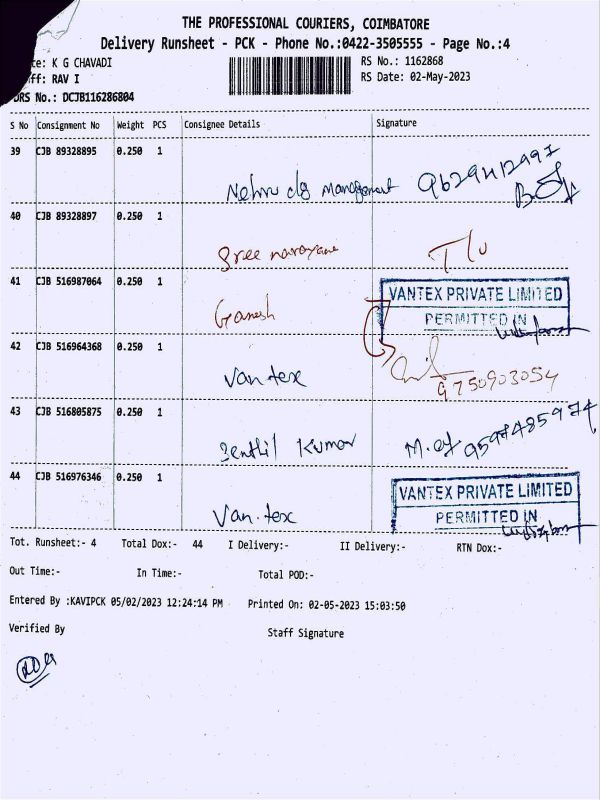 THE PROFESSIONAL COURIERS, COIMBATORE
Delivery Runsheet - PCK - Phone No.:0422-3505555 - Page No.:4
te: K G CHAVADI
RS No.: 1162868
ff: RAV I
RS Date: 02-May-2023
DRS No.: DCJB116286804
S No Consignment No Weight PCS Consignee Details Signature
39 CJB 89328895 0.250 1
Nehru clg management 9629412997
40 CJB 89328897 0.250 1
Sree narayana T/u
41 CJB 516987064 0.250 1
VANTEX PRIVATE LIMITED
Ganesh PERMITTED IN
42 CJB 516964368 0.250 1
Van tex 9750903054
43 CJB 516805875 0.250 1
Senthil Kumar 9597485974
44 CJB 516976346 0.250 1
VANTEX PRIVATE LIMITED
Van.tex PERMITTED IN
Tot. Runsheet:- 4 Total Dox:- 44 I Delivery:- II Delivery:- RTN Dox:-
Out Time:- In Time:- Total POD:-
Entered By :KAVIPCK 05/02/2023 12:24:14 PM Printed On: 02-05-2023 15:03:50
Verified By Staff Signature